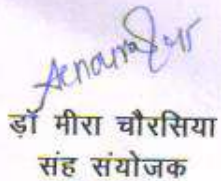 डॉ मीरा चौरसिया
संह संयोजक